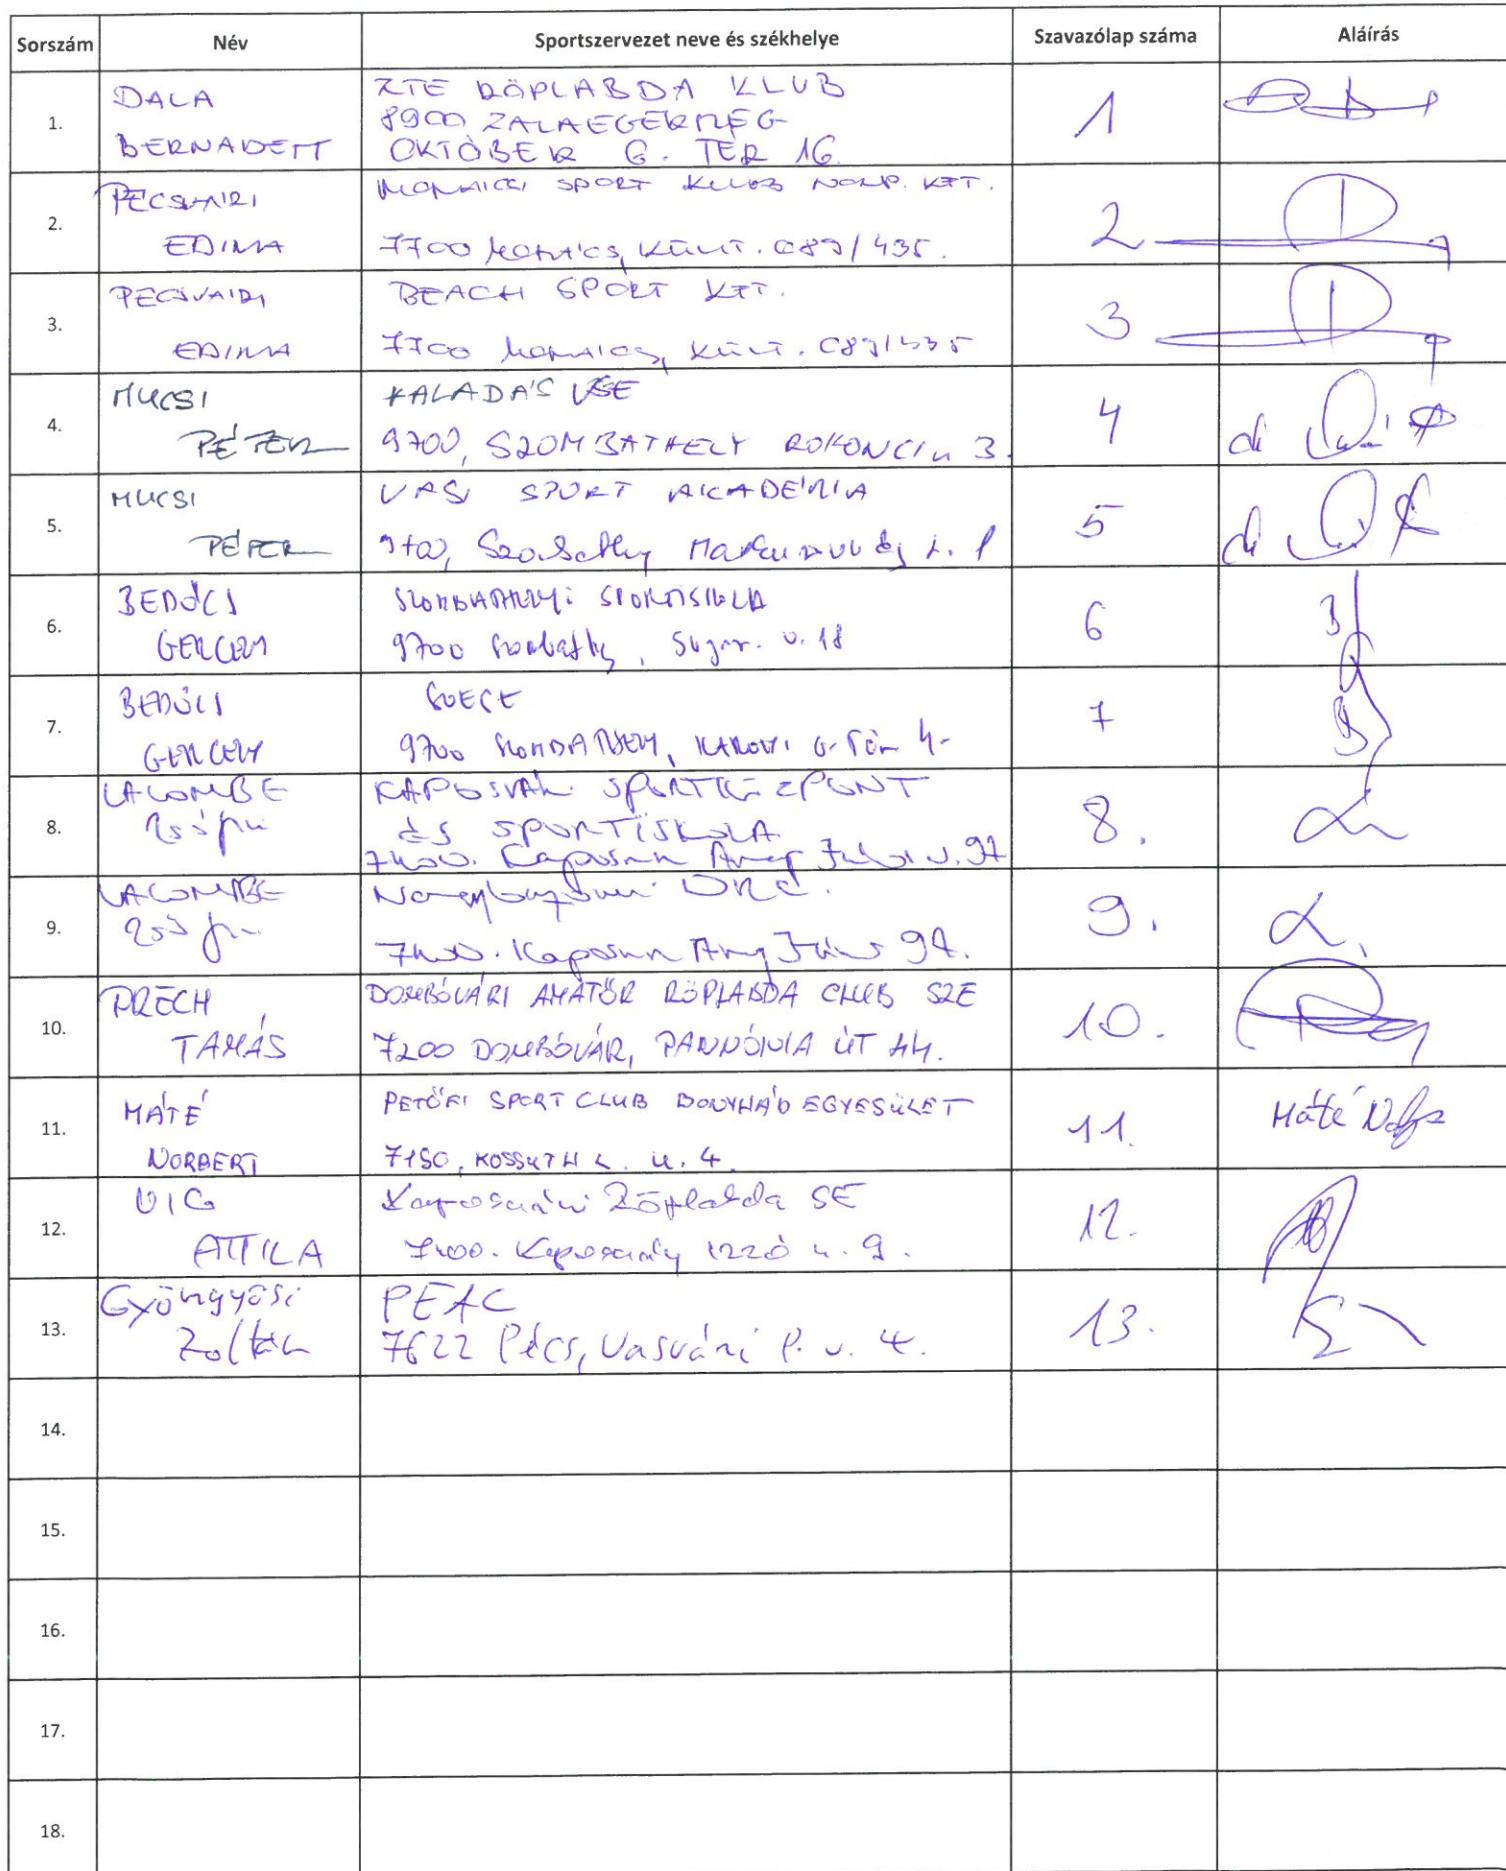 Sorszám Név Sportszervezet neve és székhelye Szavazólap száma Aláírás
1. DALA BERNADETT ZTE RÖPLABDA KLUB 1
8900 ZALAEGERSZEG
OKTÓBER 6. TÉR 16
2. EDINA SPORT KLUB NONP. KFT. 2
7700 Mohács, Külter. 089/435.
3. PÉCSVÁRI EDINA BEACH SPORT KFT. 3
7700 Mohács, Kült. 089/435
4. MUCSI PÉTER HALADÁS VSE 4
9700, SZOMBATHELY ROHONCI u 3.
5. MUCSI PÉTER VASI SPORT AKADÉMIA 5
9700, Szombathely
6. BEDŐCS GERGELY SZOMBATHELYI SPORTISKOLA 6
9700 Szombathely, Sugár u. 18
7. BEDŐCS GERGELY 7
9700 SZOMBATHELY, 4.
8. LACOMBE Zsófia KAPOSVÁRI SPORTKÖZPONT 8.
ÉS SPORTISKOLA
7400. Kaposvár Arany János u. 97
9. LACOMBE Zsófia 9.
7400. Kaposvár Arany János 97.
10. PRECH TAMÁS DOMBÓVÁRI AMATŐR RÖPLABDA CLUB SZE 10.
7200 DOMBÓVÁR, PANNÓNIA ÚT 44.
11. MÁTÉ NORBERT PETŐFI SPORT CLUB BONYHÁD EGYESÜLET 11. Máté
7150, KOSSUTH L. u. 4.
12. VIG ATTILA Kaposvári Röplabda SE 12.
7400. Kaposvár, Izzó u. 9.
13. Gyöngyösi Zoltán PEAC 13.
7622 Pécs, Vasvári P. u. 4.
14.
15.
16.
17.
18.